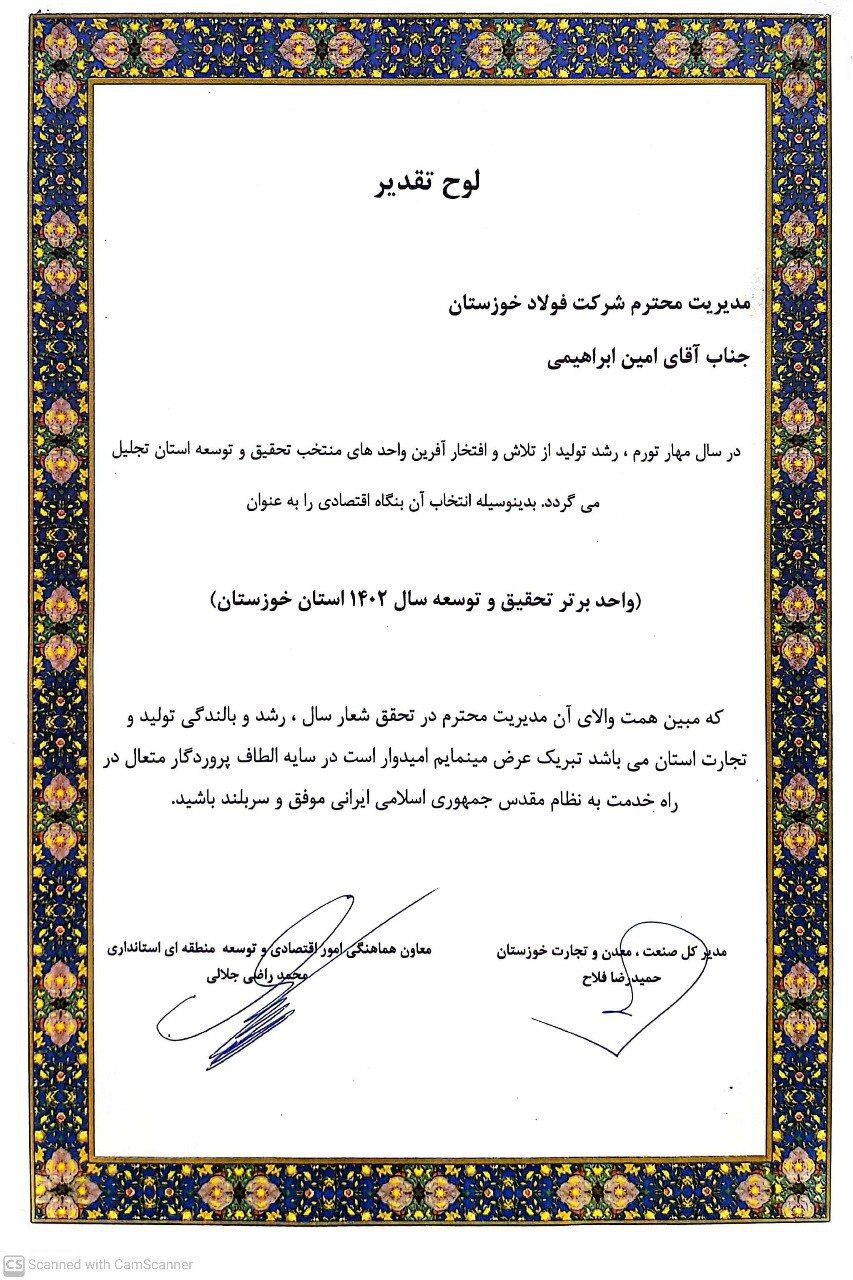 لوح تقدیر
مدیریت محترم شرکت فولاد خوزستان
جناب آقای امین ابراهیمی
در سال مهار تورم ، رشد تولید از تلاش و افتخار آفرین واحد های منتخب تحقیق و توسعه استان تجلیل
می گردد. بدینوسیله انتخاب آن بنگاه اقتصادی را به عنوان
(واحد برتر تحقیق و توسعه سال ۱۴۰۲ استان خوزستان)
که مبین همت والای آن مدیریت محترم در تحقق شعار سال ، رشد و بالندگی تولید و
تجارت استان می باشد تبریک عرض مینمایم امیدوار است در سایه الطاف پروردگار متعال در
راه خدمت به نظام مقدس جمهوری اسلامی ایرانی موفق و سربلند باشید.
مدیر کل صنعت ، معدن و تجارت خوزستان
حمیدرضا فلاح
معاون هماهنگی امور اقتصادی و توسعه منطقه ای استانداری
محمد راضی جلالی
CS Scanned with CamScanner